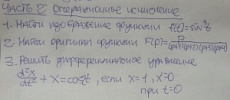 Часть 2 Операционное исчисление
1. Найти изображение функции f(t)=sin²t
2. Найти оригинал функции F(p)=
3. Решить дифференциальное уравнение
d²x/dt² + x = cos t, если x=1, x'=0
при t=0